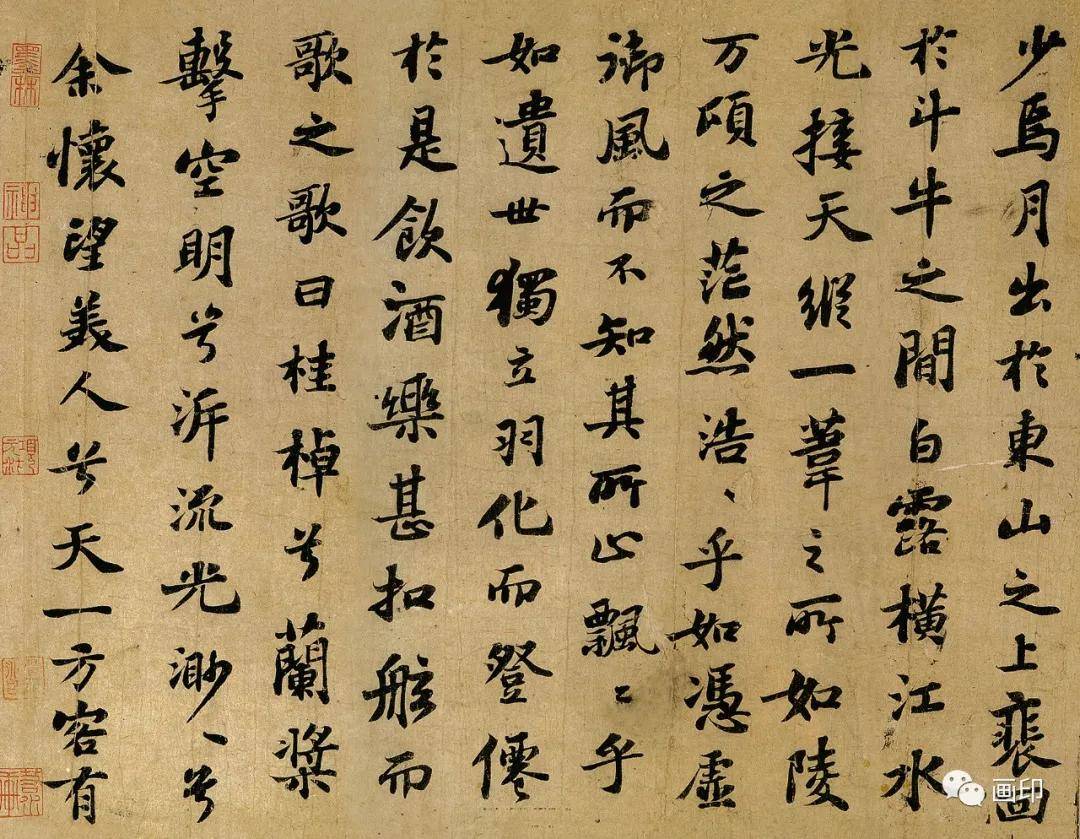 少焉月出於東山之上裵回
於斗牛之間白露橫江水
光接天縱一葦之所如陵
万頃之茫然浩、乎如憑虛
御風而不知其所止飄〻乎
如遺世獨立羽化而登僊
於是飲酒樂甚扣舷而
歌之歌曰桂棹兮蘭槳
擊空明兮泝流光渺、兮
余懷望美人兮天一方客有
墨林
神品
画印